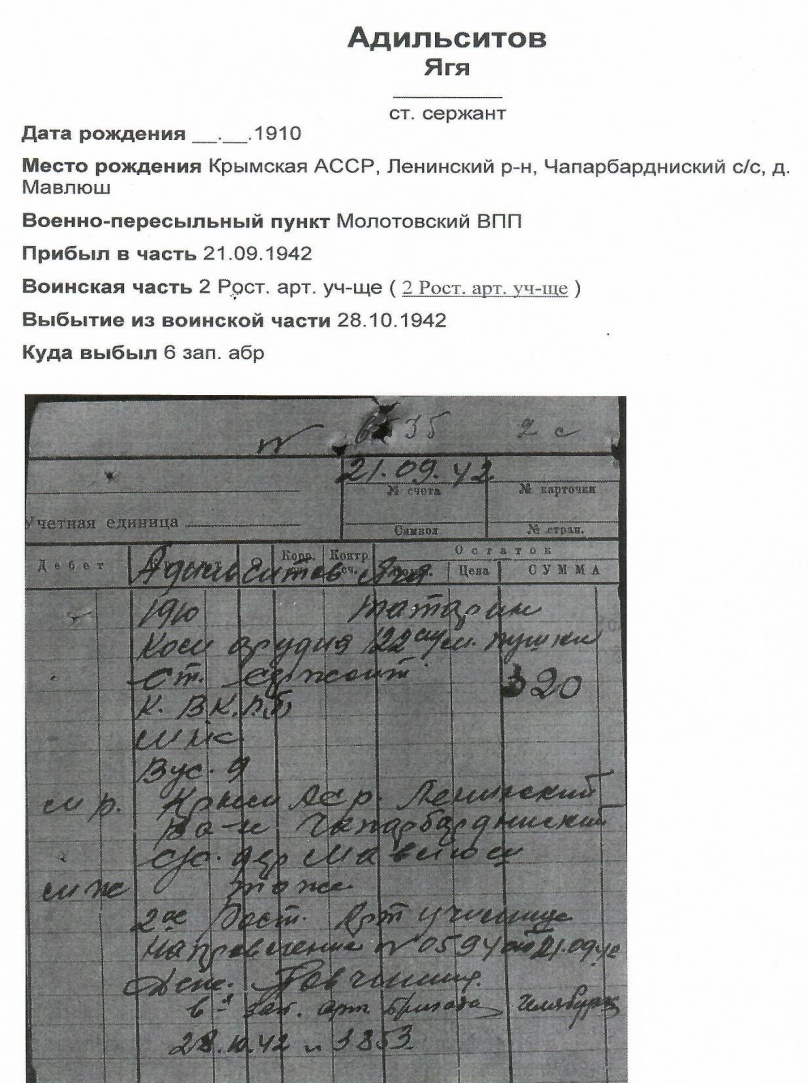 Адильситов
Ягя
ст. сержант
Дата рождения __.__.1910
Место рождения Крымская АССР, Ленинский р-н, Чапарбардниский с/с, д.
Мавлюш
Военно-пересыльный пункт Молотовский ВПП
Прибыл в часть 21.09.1942
Воинская часть 2 Рост. арт. уч-ще ( 2 Рост. арт. уч-ще )
Выбытие из воинской части 28.10.1942
Куда выбыл 6 зап. абр
2 с
21.09.42
№ счета № карточки
Учетная единица
Символ № стран.
Дебет Корр. Контр. Остаток
сч. Цена СУММА
Адильситов Ягя
1910 татарин
орудия 122 м.м. пушки
Ст. сержант 320
К. ВКПБ
Вус. 9
м р. Крым АССР. Ленинский
Чапарбардниский
с/с. дер Мавлюш
м ж тоже
2ое Рост. Арт училище
Направление № 0594 от 21.09.42
зап. арт. бригада
28.10.42 3853